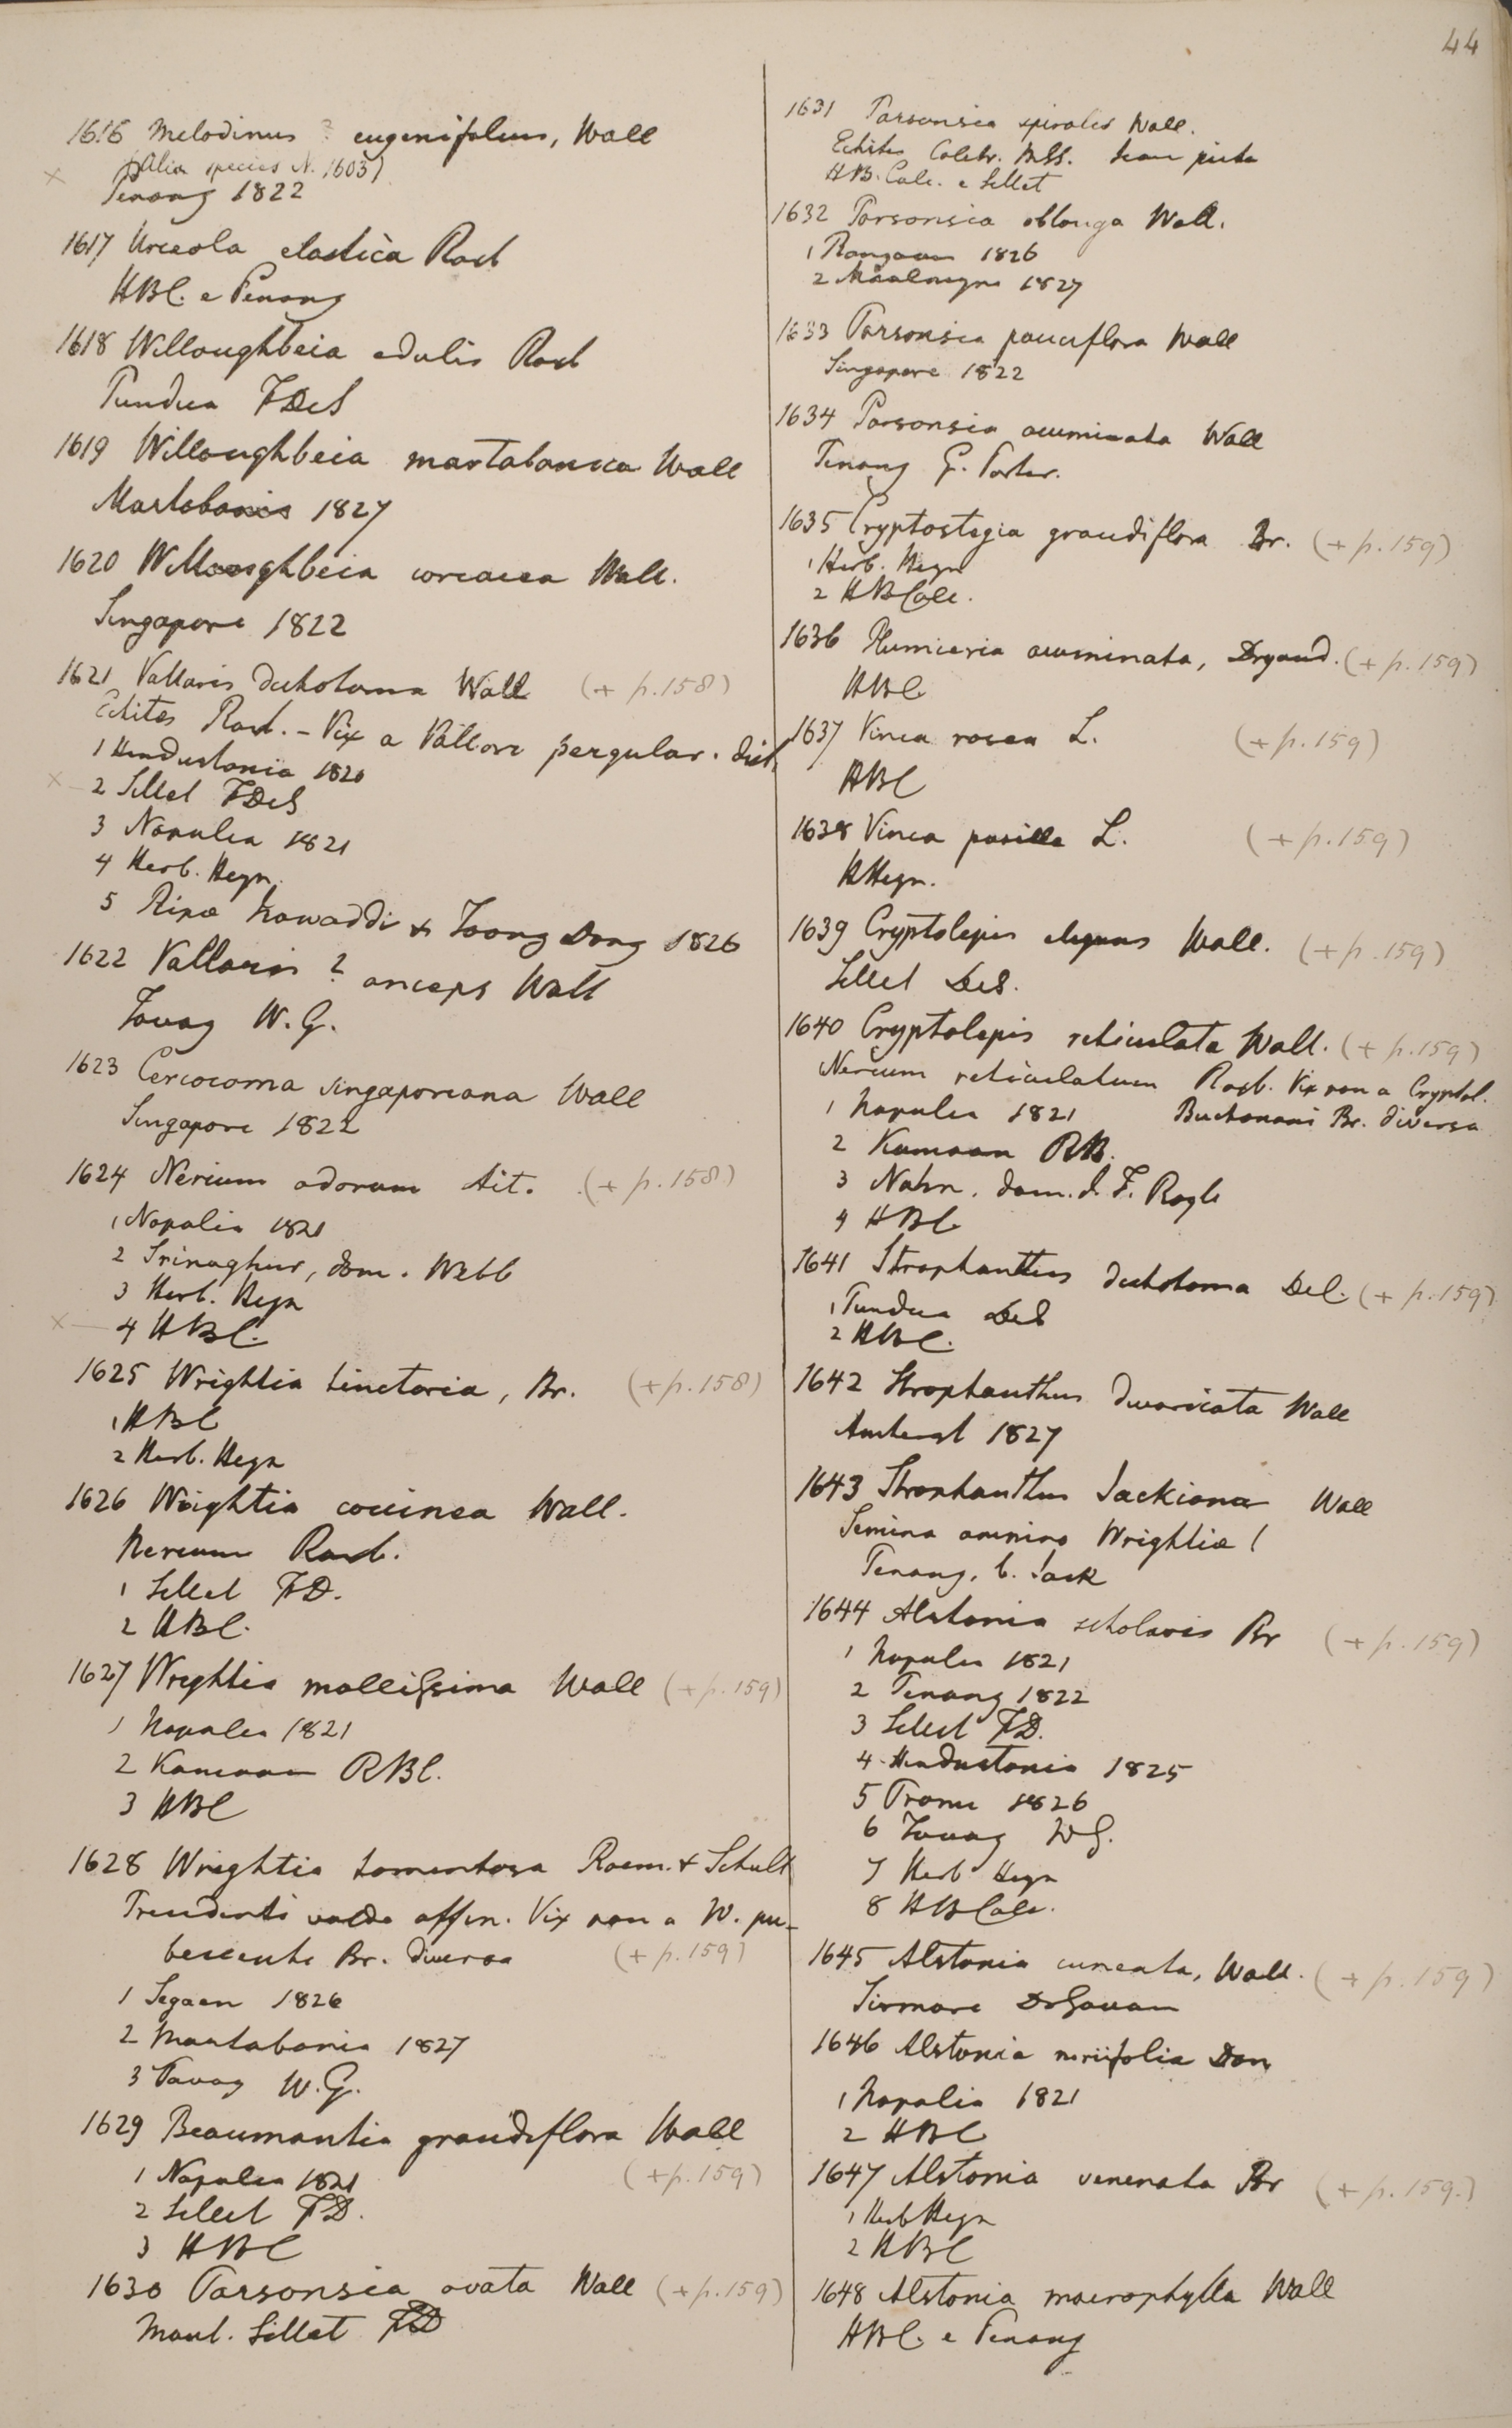 44
1616 Melodinus ? eugenifolius, Wall
(Alia species N. 1603)
Penang 1822
1617 Urceola elastica Roxb
HBC. e Penang
1618 Willoughbeia edulis Roxb
Pundua FDeS
1619 Willoughbeia martabanica Wall
Martabania 1827
1620 Willoughbeia coriacea Wall.
Singapore 1822
1621 Vallaris dichotoma Wall (+ p.158)
Echites Roxb. - Vix a Vallari pergular. dist.
1 Hindustania 1820
2 Sillet FDeS
3 Napalia 1821
4 Herb. Heyn.
5 Ripa Irawaddi & Toong Dong 1826
1622 Vallaris ? anceps Wall
Tavoy W.G.
1623 Cercocoma singaporeana Wall
Singapore 1822
1624 Nerium odorum Ait. (+ p.158)
1 Napalia 1821
2 Srinaghur, dom. Webb
3 Herb. Heyn
4 HBC.
1625 Wrightia tinctoria, Br. (+ p.158)
1 HBC
2 Herb. Heyn
1626 Wrightia coccinea Wall.
Nerium Roxb.
1 Sillet FD.
2 HBC.
1627 Wrightia mollissima Wall (+ p.159)
1 Napalia 1821
2 Kamaon RBl.
3 HBC
1628 Wrightia tomentosa Roem. & Schult
Precedenti valde affin. Vix non a W. pu-
bescente Br. diversa (+ p.159)
1 Segaen 1826
2 Martabania 1827
3 Tavoy W.G.
1629 Beaumontia grandiflora Wall
(+ p.159)
1 Napalia 1821
2 Sillet FD.
3 HBC
1630 Parsonsia ovata Wall (+ p.159)
Mont. Sillet FD
1631 Parsonsia spiralis Wall.
Echites Colebr. MSS. icon picta
HB. Calc. e Sillet
1632 Parsonsia oblonga Wall.
1 Rangoon 1826
2 Maalmeyne 1827
1633 Parsonsia pauciflora Wall
Singapore 1822
1634 Parsonsia acuminata Wall
Penang G. Porter.
1635 Cryptostegia grandiflora Br. (+ p.159)
1 Herb. Heyn
2 HBCalc.
1636 Plumieria acuminata, Dryand. (+ p.159)
HBC
1637 Vinca rosea L. (+ p.159)
HBC
1638 Vinca pusilla L. (+ p.159)
HHeyn.
1639 Cryptolepis elegans Wall. (+ p.159)
Sillet DeS.
1640 Cryptolepis reticulata Wall. (+ p.159)
Nerium reticulatum Roxb. Vix non a Cryptol.
1 Napalia 1821 Buchanani Br. diversa
2 Kamaon RB.
3 Nahn. dom. J. F. Royle
4 HBC
1641 Strophanthus dichotoma Del. (+ p.159)
1 Pundua DeS
2 HBC.
1642 Strophanthus divaricata Wall
Amherst 1827
1643 Strophanthus Jackiana Wall
Semina omnino Wrightiæ !
Penang. G. Jack
1644 Alstonia scholaris Br (+ p.159)
1 Napalia 1821
2 Penang 1822
3 Sillet FD.
4 Hindustania 1825
5 Prome 1826
6 Tavoy WG.
7 Herb Heyn
8 HBCalc.
1645 Alstonia cuneata, Wall. (+ p.159)
Sirmore DrGovan
1646 Alstonia neriifolia Don
1 Napalia 1821
2 HBC
1647 Alstonia venenata Br (+ p.159.)
1 Herb Heyn
2 HBC
1648 Alstonia macrophylla Wall
HBC. e Penang